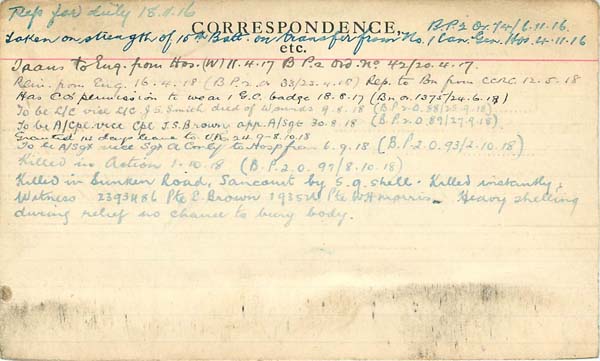 Rep for duty 18.11.16
CORRESPONDENCE,
etc.
B.P.2 Or. 74/6.11.16.
Taken on strength of 10th Batt. on transfer from No. 1 Can. Gen. Hos. 4.11.16
Trans to Eng. from Hos. (W) 11.4.17 B P 2 Ord. No. 42/20.4.17.
Rein. from Eng. 16.4.18 (B.P.2 or 33/23.4.18) Rep. to Bn from CCRC. 12.5.18
Has CO's permission to wear 1 G.C. badge 18.8.17 (Bn. or 1375/24.6.18)
To be L/C vice L/C J.S. Smith died of Wounds 9.8.18 (B.P.2.0.88/25.9.18)
To be A/Cpl. vice Cpl J.S. Brown app. A/Sgt 30.8.18 (B.P.2.0.89/27.9.18)
Granted 14 days leave to U.K. 24.9-8.10.18
To be A/Sgt vice Sgt A Conly to Hosp from 6.9.18 (B.P.2.0.93/2.10.18)
Killed in Action 1.10.18 (B.P.2.0. 97/8.10.18)
Killed in Sunken Road, Sancourt by 5.9 shell. Killed instantly,
Witness 2393486 Pte C. Brown Pte W.H. Morris. Heavy shelling
during relief no chance to bury body.